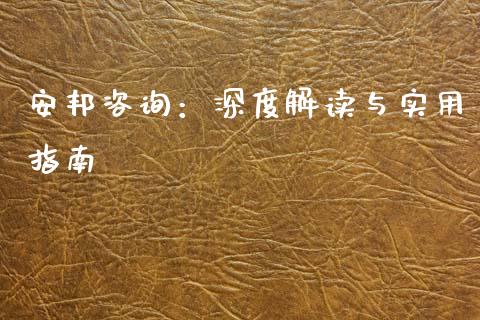 安邦咨询：深度解读与实用
指南